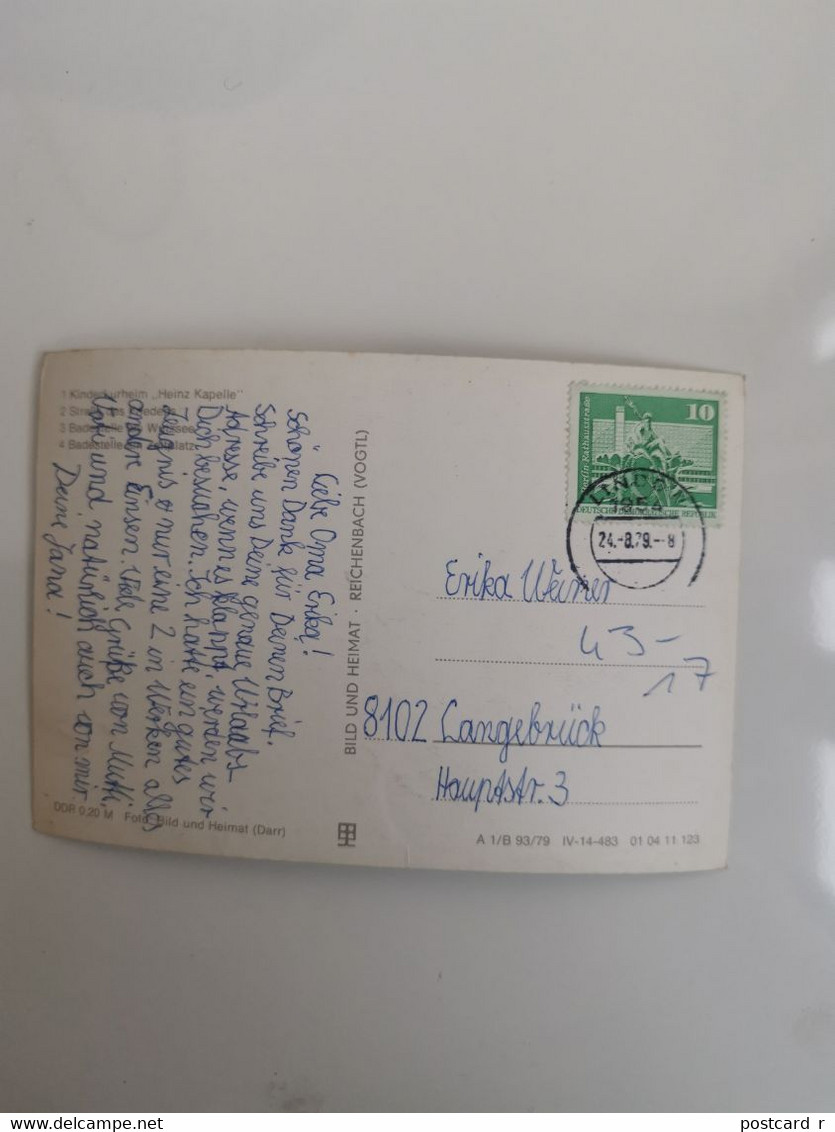 1 Kinderkurheim „Heinz Kapelle"
2 Straße des Friedens
3 Badestelle
4 Badestelle
Liebe Oma Erika!
Schönen Dank für Deinen Brief.
Schreibe uns Deine genaue Urlaubs
Adresse, wenn es klappt, werden wir
Dich besuchen. Ich hatte ein gutes
Zeugnis nur eine 2 in Werken alles
andere Einsen. Viele Grüße von Mutti,
und natürlich auch von mir
Deine Jana!
DDR 0,20 M Foto: Bild und Heimat (Darr)
BILD UND HEIMAT · REICHENBACH (VOGTL)
10
Berlin·Rathausstraße
DEUTSCHE DEMOKRATISCHE REPUBLIK
LINDOW
1954
24.-8.79.-8
Erika Werner
43-
17
8102 Langebrück
Hauptstr. 3
A 1/B 93/79 IV-14-483 01 04 11 123
postcard r